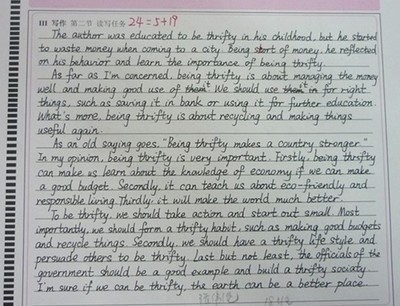 III 写作 第二节 读写任务 24=5+19
The author was educated to be thrifty in his childhood, but he started
to waste money when coming to a city. Being short of money, he reflected
on his behavior and learn the importance of being thrifty.
As far as I'm concerned, being thrifty is about managing the money
well and making good use of it. We should use it for right
things, such as saving it in bank or using it for further education.
What's more, being thrifty is about recycling and making things
useful again.
As an old saying goes, "Being thrifty makes a country stronger."
In my opinion, being thrifty is very important. Firstly, being thrifty
can make us learn about the knowledge of economy if we can make
a good budget. Secondly, it can teach us about eco-friendly and
responsible living. Thirdly, it will make the world much better.
To be thrifty, we should take action and start out small. Most
importantly, we should form a thrifty habit, such as making good budgets
and recycle things. Secondly, we should have a thrifty life style and
persuade others to be thrifty. Last but not least, the officials of the
government should be a good example and build a thrifty society.
I'm sure if we can be thrifty, the earth can be a better place.